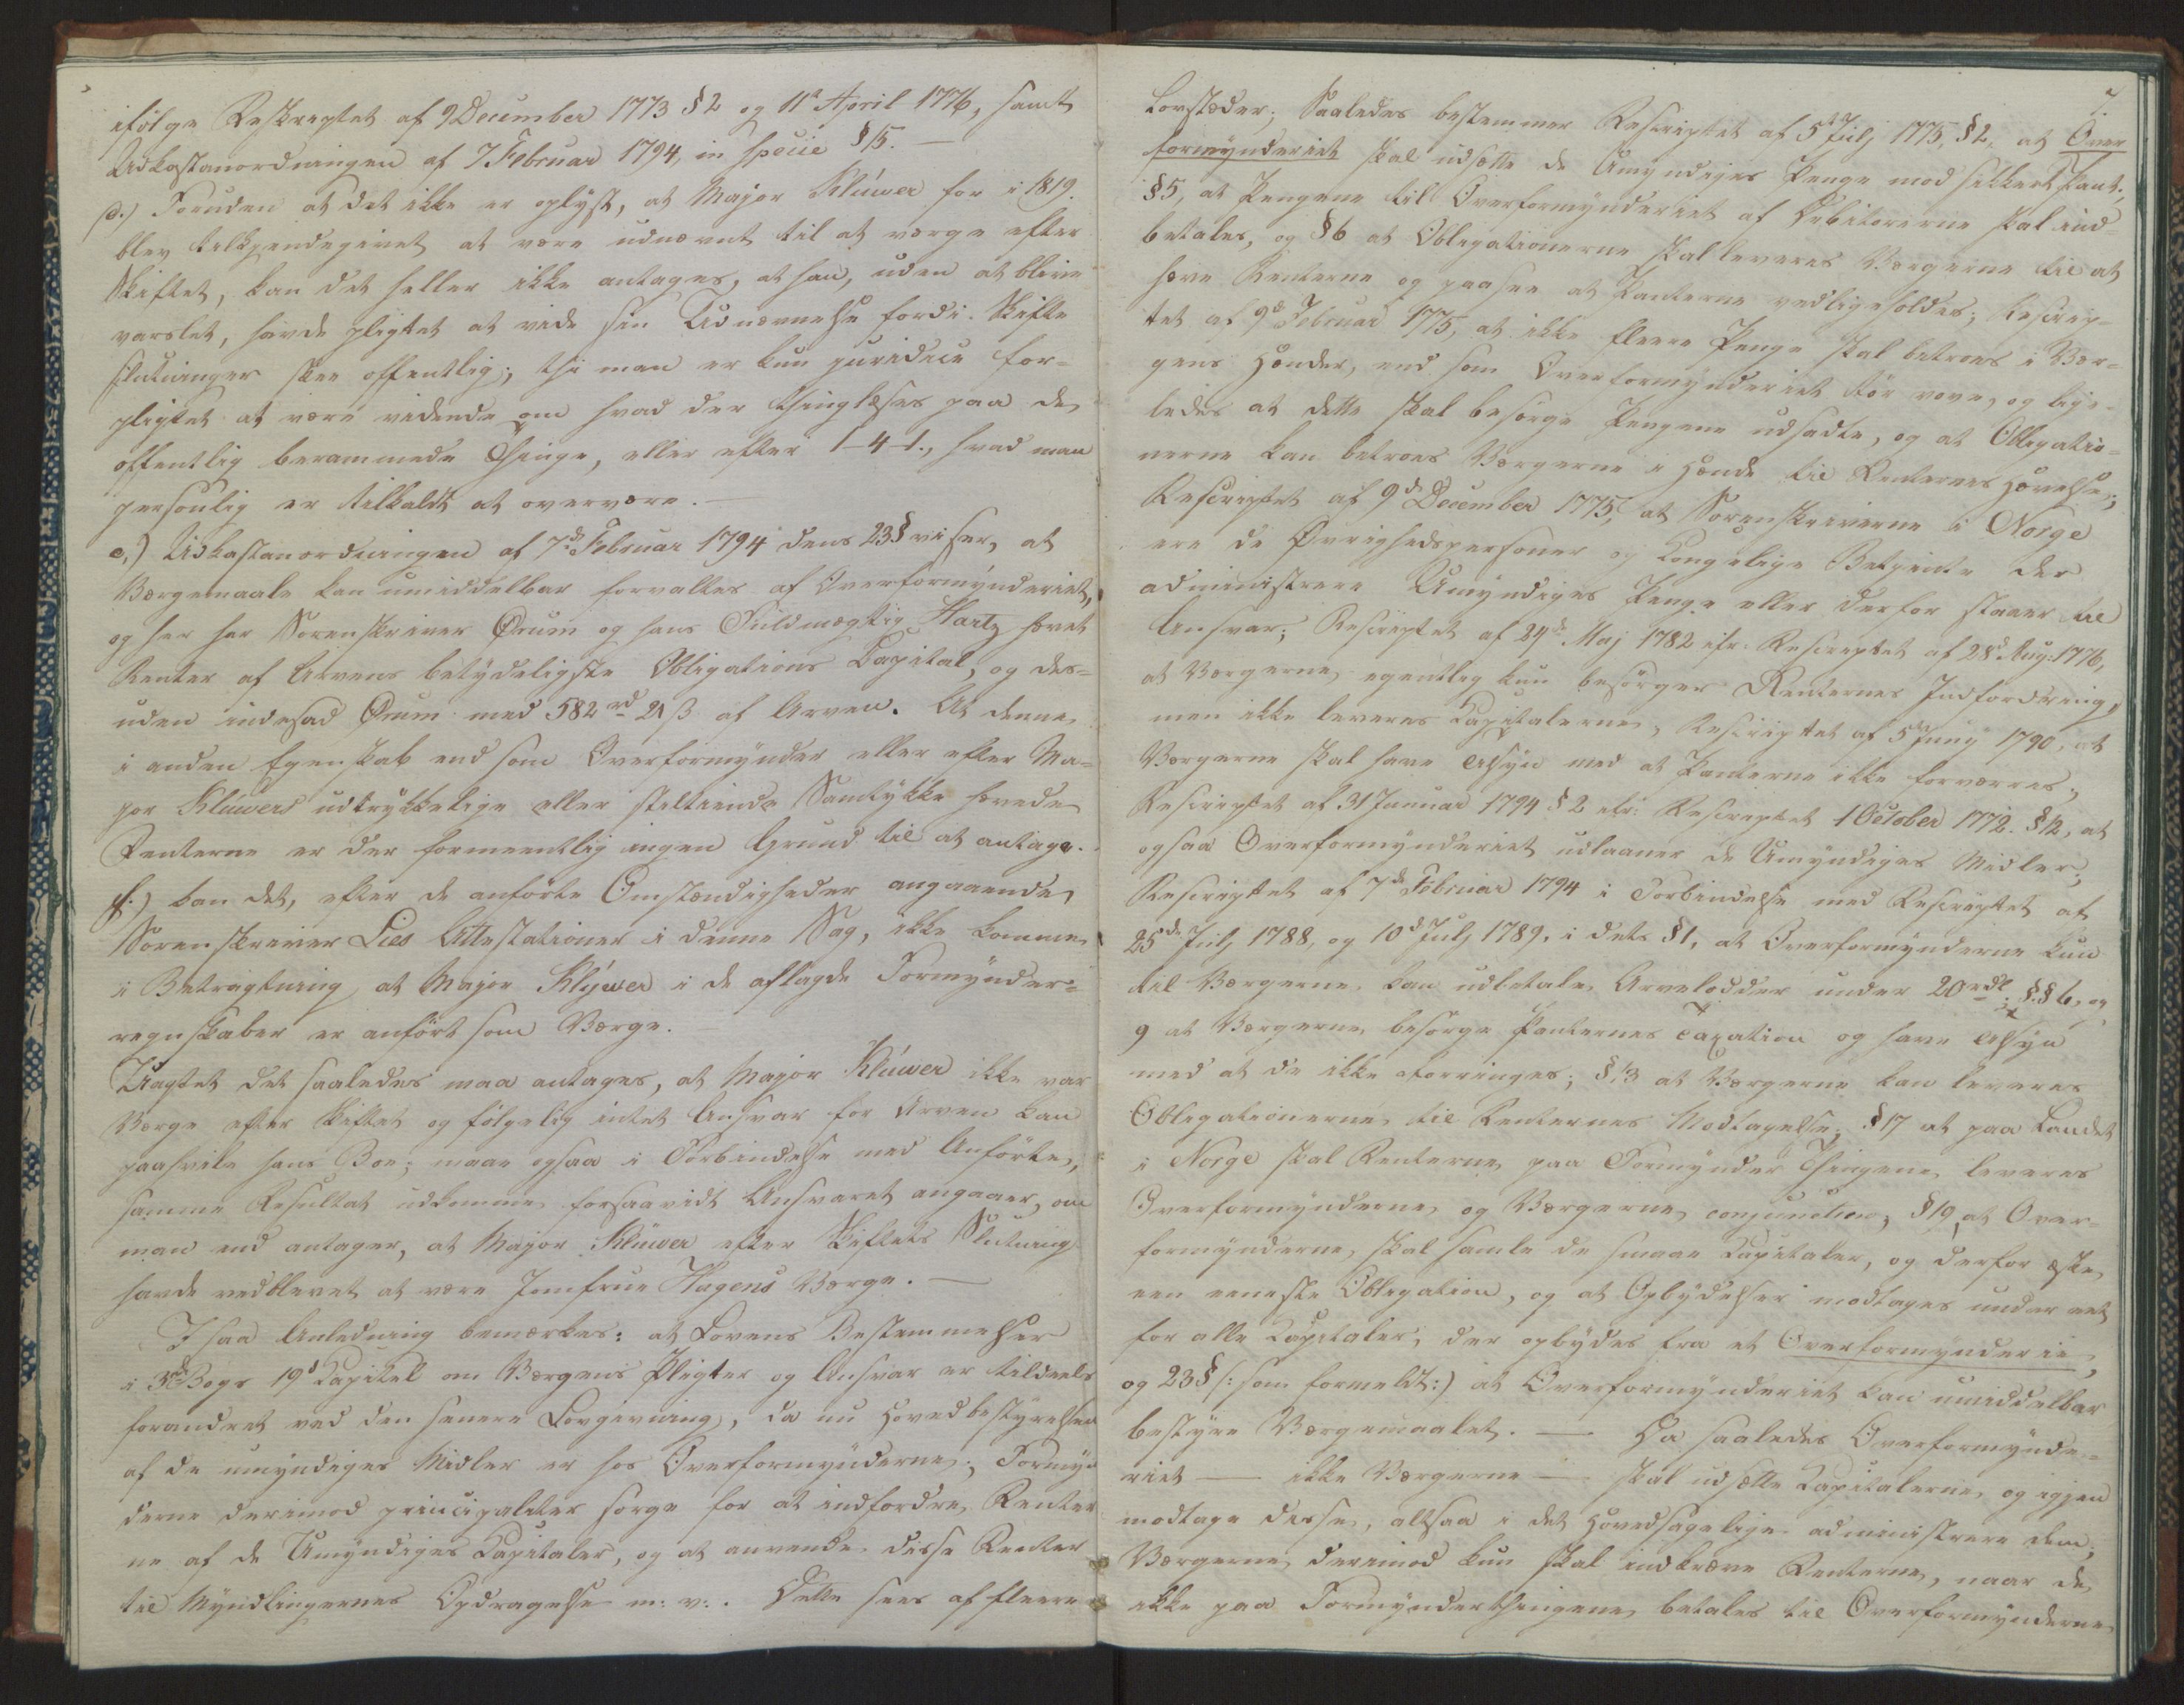 ifølge Reskriptet af 9 December 1773 § 2 og 11te April 1776, samt
Udkastanordningen af 7 Februar 1794, in specie § 15. —
d.) Foruden at det ikke er oplyst, at Major Klüwer før i 1819.
blev tilkjendegivet at være udnævnt til at værge efter
Skiftet, kan det heller ikke antages, at han, uden at blive
varslet, havde pligtet at vide sin Udnævnelse fordi Skifte
slutninger skee offentlig; thi man er kun juridice for-
pligtet at være vidende om hvad der thinglæses paa de
offentlig berammede Thinge, eller efter 1-4-1., hvad man
personlig er tilkaldt at overvære. —
e.) Udkastanordningen af 7de Februar 1794 dens 23 § viser, at
Værgemaale kan umiddelbar forvaltes af Overformynderiet,
og her har Sorenskriver Ørum og hans Fuldmægtig Hartz hævet
Renter af Arvens betydeligste Obligations Capital, og des-
uden indesad Ørum med 582 rd 21 ß af Arven. At denne
i anden Egenskab end som Overformynder eller efter Ma-
jor Klüwers udtrykkelige eller stiltiende Samtykke hævede
Renterne er der formeentlig ingen Grund til at antage.
f.) kan det, efter de anførte Omstændigheder angaaende
Sorenskriver Lies Attestationer i denne Sag, ikke komme
i Betragtning at Major Klüwer i de aflagde Formynder-
regnskaber er anført som Værge.
Uagtet det saaledes maa antages, at Major Klüwer ikke var
Værge efter Skiftet og følgelig intet Ansvar for Arven kan
paahvile hans Boe; maae ogsaa i Forbindelse med Anførte,
samme Resultat udkomme forsaavidt Ansvaret angaaer, om
man end antager, at Major Klüwer efter Skiftets Slutning
havde vedblevet at være Jomfrue Hagens Værge. —
I saa Anledning bemærkes: at Lovens Bestemmelser
i 3die Bogs 19d Capitel om Værgens Pligter og Ansvar er tildeels
forandret ved den senere Lovgivning, da nu Hovedbestyrelsen
af de umyndiges Midler er hos Overformynderne; Formyn
derne derimod principaliter sørge for at indfordre Renter
ne af de Umyndiges Capitaler, og at anvende disse Renter
til Myndlingernes Opdragelse m: v:. Dette sees af fleere
7.
Lovstæder; Saaledes bestemmer Rescriptet af 5te Julj 1775, § 2, at Over
formynderiet skal udsætte de Umyndiges Penge mod sikkert Pant;
§ 5, at Pengene til Overformynderiet af Debitorerne skal ind-
betales, og § 6 at Obligationerne skal leveres Værgerne til at
hæve Renterne og paasee at Panterne vedligeholdes; Rescrip-
tet af 9de Februar 1775, at ikke fleere Penge skal betroes i Vær-
gens Hænder, end som Overformynderiet tør vove, og lige-
ledes at dette skal besørge Pengene udsadte, og at Obligatio-
nerne kan betroes Værgerne i Hænde til Renternes Hævelse;
Rescriptet af 9de December 1775, at Sorenskriverne i Norge
ere de Øvrighedspersoner og Kongelige Betjente der
administrere Umyndiges Penge eller derfor staaer til
Ansvar; Rescriptet af 24de Maj 1782 cfr. Rescriptet af 28d Aug: 1776,
at Værgerne egentlig kun besørger Renternes Indfordring,
men ikke leveres Capitalerne, Rescriptet af 5te Junij 1790, at
Værgerne skal have Tilsyn med at Panterne ikke forværres;
Rescriptet af 31 Januar 1794 § 2 cfr: Rescriptet 1 October 1772. § 12, at
ogsaa Overformynderiet udlaaner de Umyndiges Midler;
Rescriptet af 7de Februar 1794 i Forbindelse med Rescriptet af
25de Julj 1788, og 10d Julj 1789, i dets § 1, at Overformynderne kun
til Værgerne kan udbetale Arvelodder under 20 rdl; §. § 6, og
9 at Værgerne besørge Panternes Taxation og have Tilsyn
med at de ikke forringes; § 13 at Værgerne kan leveres
Obligationerne til Renternes Modtagelse; § 17 at paa Landet
i Norge skal Renterne paa Formynder Thingene leveres
Overformynderne og Værgerne conjunctim; § 19, at Over-
formynderne skal samle de smaae Capitaler, og derfor æske
een eneste Obligation, og at Opbydelser modtages under eet
for alle Capitaler, der opbydes fra et Overformynderie,
og 23 § (: som formeldt :) at Overformynderiet kan umiddelbar
bestyre Værgemaalet. — Da saaledes Overformynde-
riet — ikke Værgerne — skal udsætte Capitalerne og igjen
modtage disse, altsaa i det Hovedsagelige administrere dem;
Værgerne derimod kun skal indkræve Renterne, naar de
ikke paa Formynderthingene betales til Overformynderne